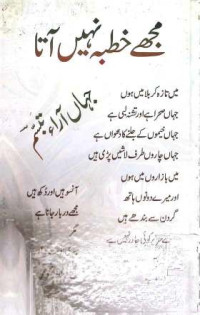 مجھے خطبہ نہیں آتا
جہاں آراء تبسم
میں تازہ کربلا میں ہوں
جہاں صحرا ہے اور تشنہ لبی ہے
جہاں خیموں کے جلنے کا دھواں ہے
جہاں چاروں طرف لاشیں پڑی ہیں
میں بازاروں میں ہوں
اور میرے دونوں ہاتھ
گردن سے بندھے ہیں
آنسو ہیں اور دکھ ہیں
مجھے دربار جانا ہے
مگر